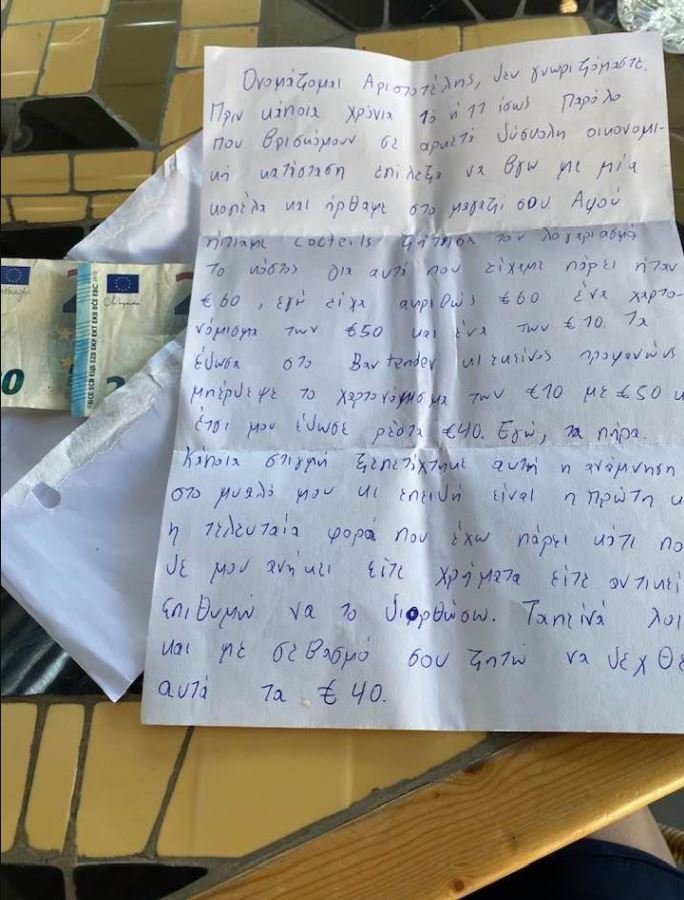 Ονομάζομαι Αριστοτέλης, δεν γνωριζόμαστε.
Πριν κάποια χρόνια 10 ή 11 ίσως Παρόλο
που βρισκόμουν σε αρκετά δύσκολη οικονομι-
κή κατάσταση επέλεξα να βγω με μία
κοπέλα και ήρθαμε στο μαγαζί σου Αφού
ήπιαμε cocteils ζήτησα τον λογαριασμό
Το κόστος για αυτά που είχαμε πάρει ήταν
€60, εγώ είχα ακριβώς €60 ένα χαρτο-
νόμισμα των €50 και ένα των €10. Τα
έδωσα στο Bartender κι εκείνος προφανώς
μπέρδεψε το χαρτονόμισμα των €10 με €50 κ
έτσι μου έδωσε ρέστα €40. Εγώ, τα πήρα.
Κάποια στιγμή ξεπετάχτηκε αυτή η ανάμνηση
στο μυαλό μου κι επειδή είναι η πρώτη κ
η τελευταία φορά που έχω πάρει κάτι πο
δε μου ανήκει είτε χρήματα είτε αντικεί
Επιθυμώ να το διορθώσω. Ταπεινά λοι
και με σεβασμό σου ζητώ να δεχθε
αυτά τα €40.
BCE ECB EZB EKP EKT EKB BCE EBC